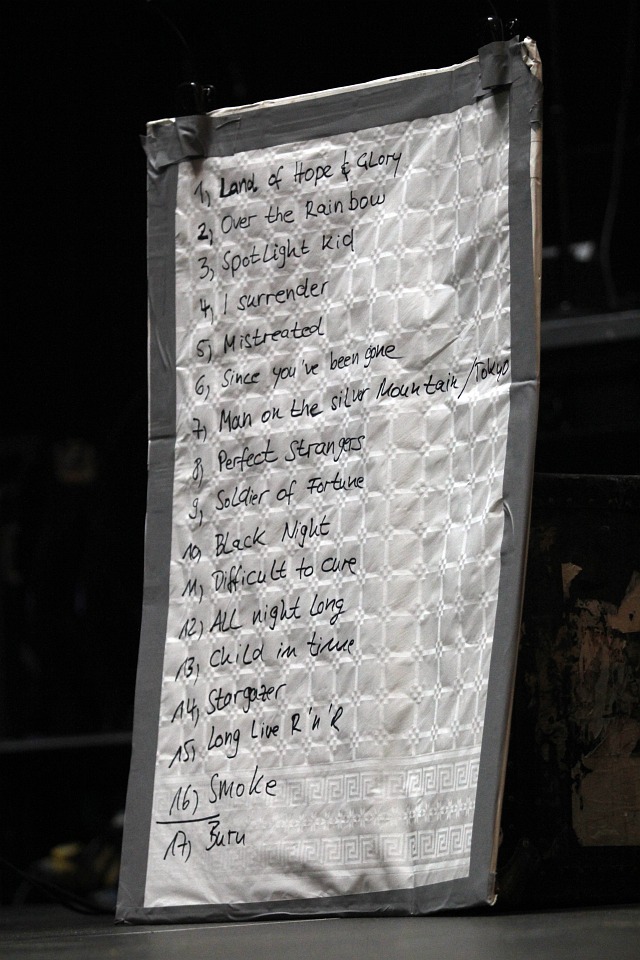 1, Land of Hope & Glory
2, Over the Rainbow
3, Spotlight kid
4, I surrender
5, Mistreated
6, Since you've been gone
7, Man on the silver Mountain / Tokyo
8, Perfect Strangers
9, Soldier of Fortune
10, Black Night
11, Difficult to cure
12, All night long
13, Child in time
14, Stargazer
15, Long Live R'n'R
16, Smoke
17, Burn